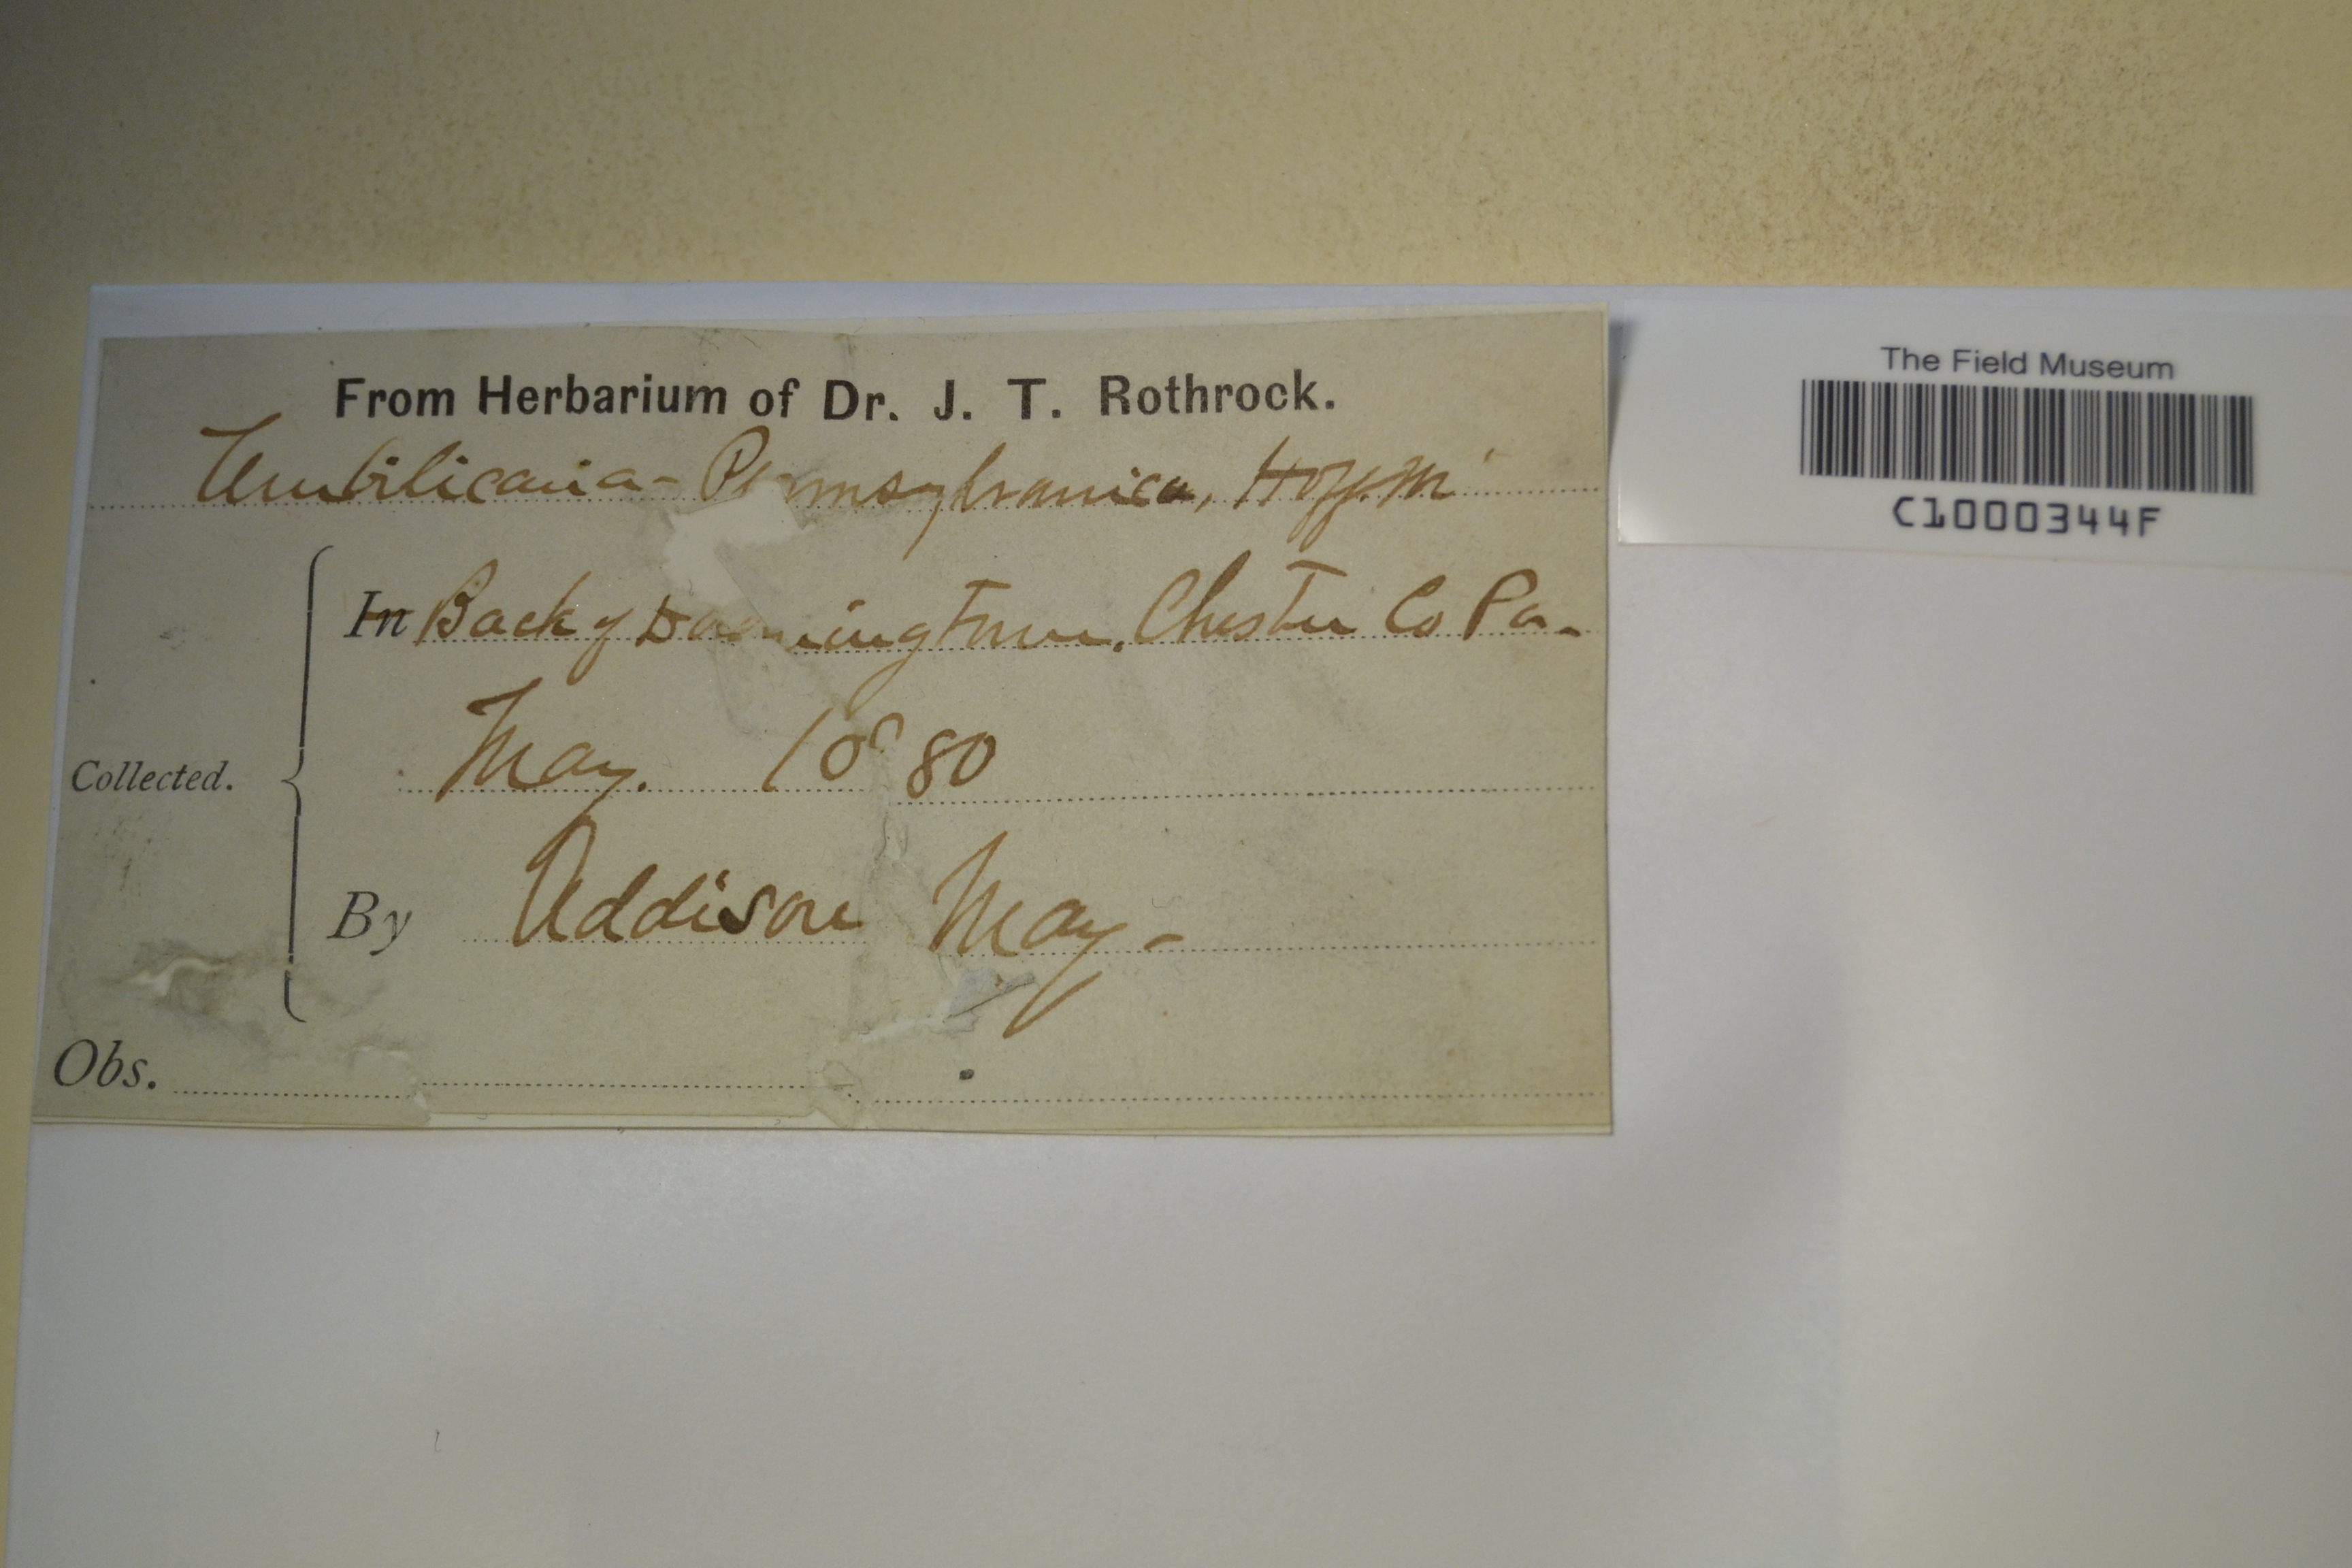 From Herbarium of Dr. J. T. Rothrock.
Umbilicaria - Pennsylvanica, Hoffm
In Back of Downingtown. Chester Co Pa.
May. 10 80
Collected.
By Addison May -
Obs.
The Field Museum
C1000344F